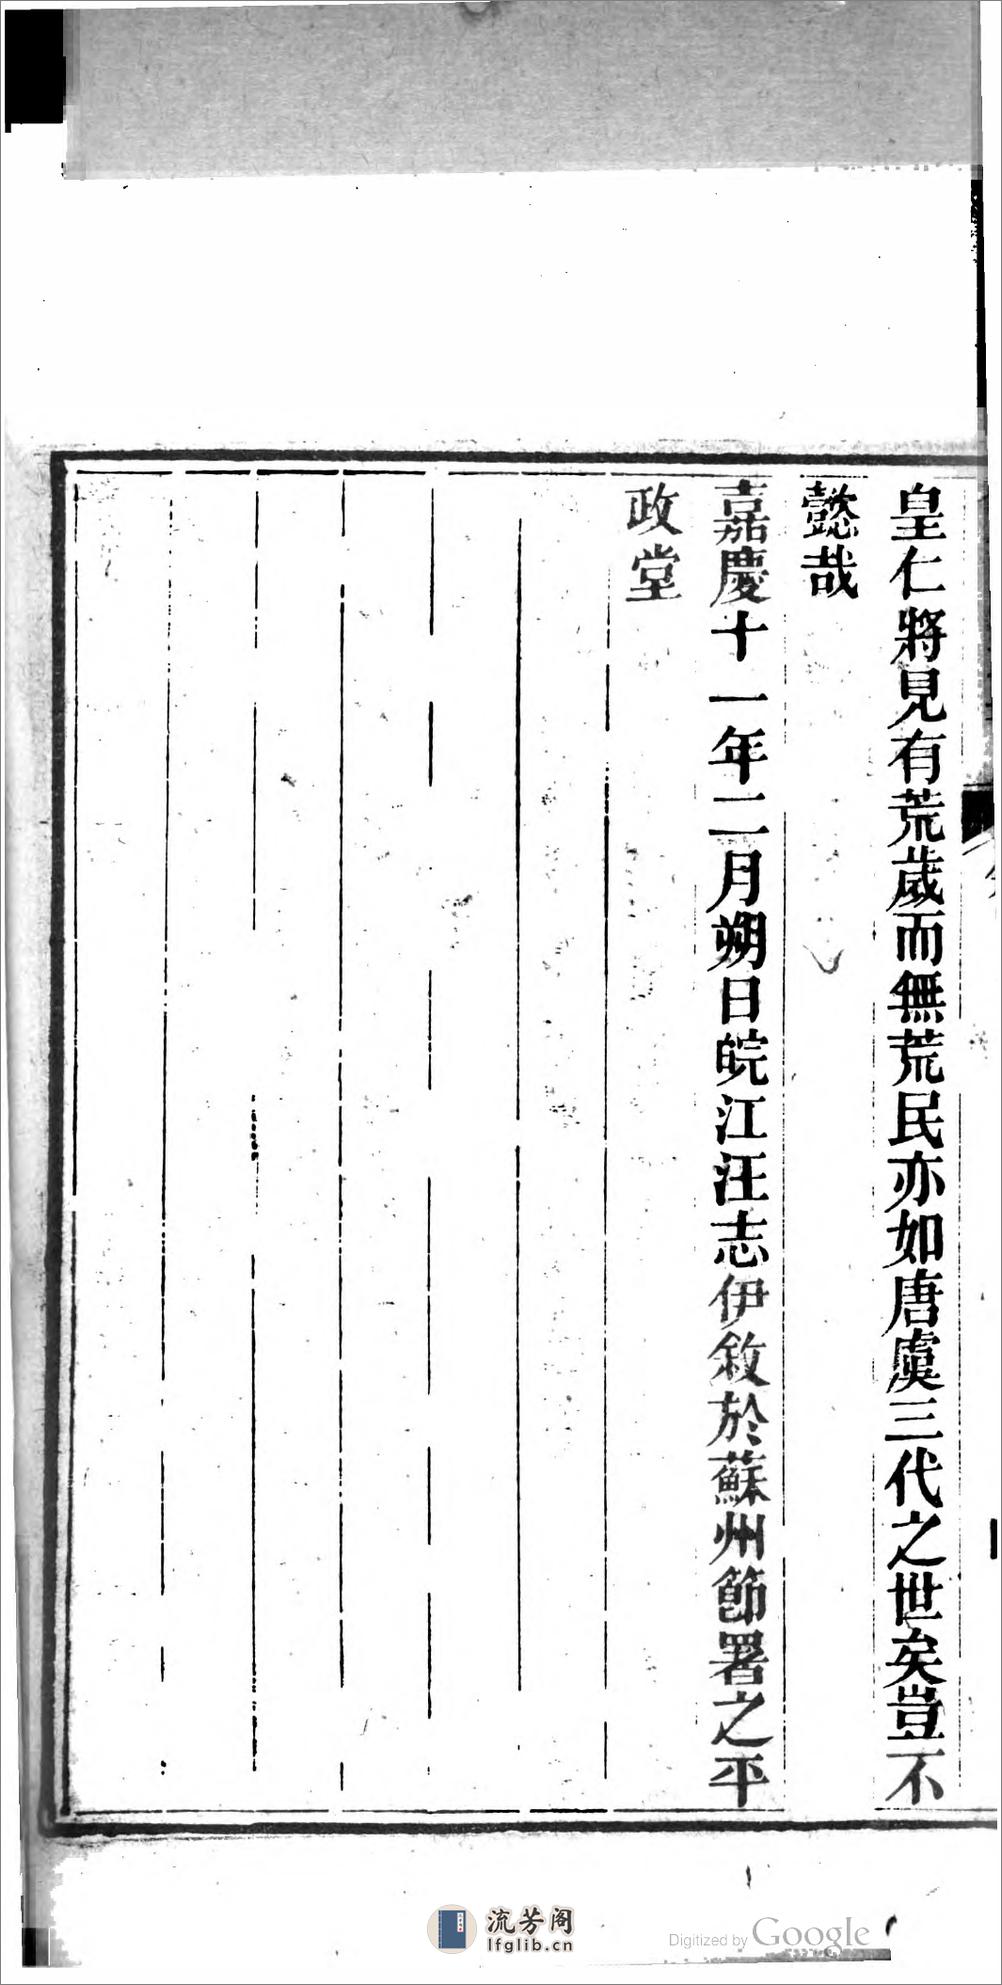 皇仁將見有荒歲而無荒民亦如唐虞三代之世矣豈不
懿哉
嘉慶十一年二月朔日皖江汪志伊敘於蘇州節署之平
政堂
流芳阁
lfglib.cn
Digitized by Google